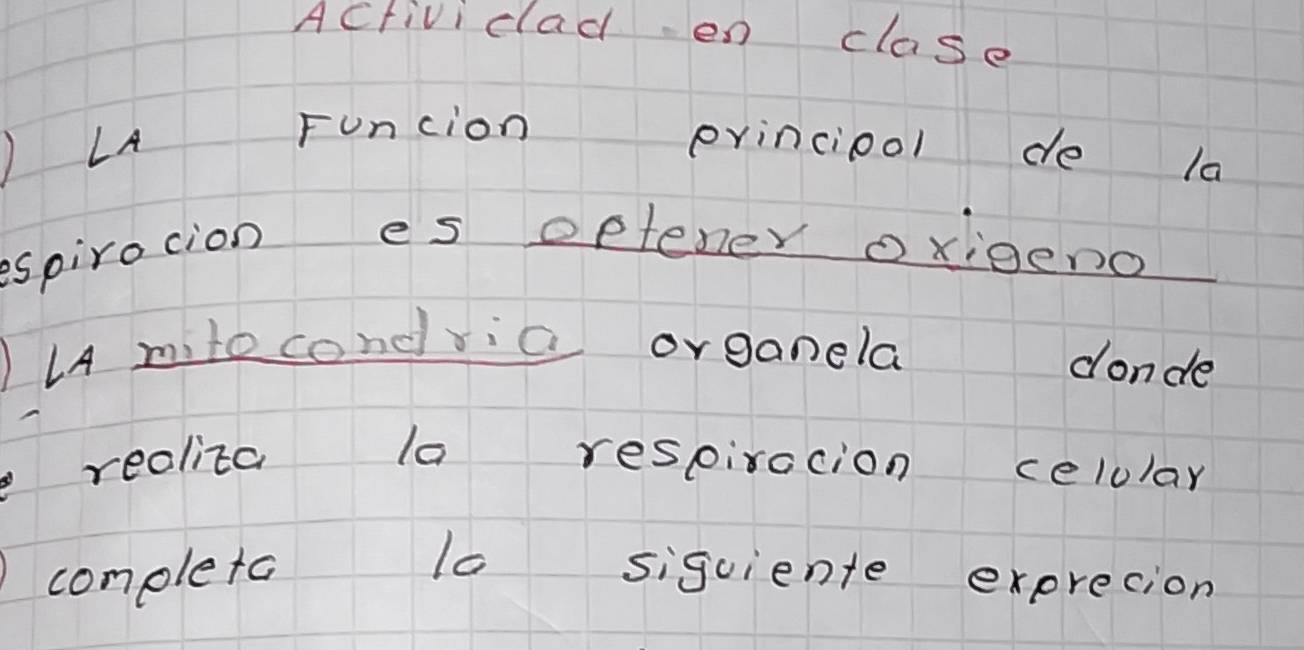 Actividad en clase
) LA Funcion principal de la
espiracion es optener oxigeno
) LA mitocondria organela donde
e realiza la respiracion celular
) completa la siguiente exprecion